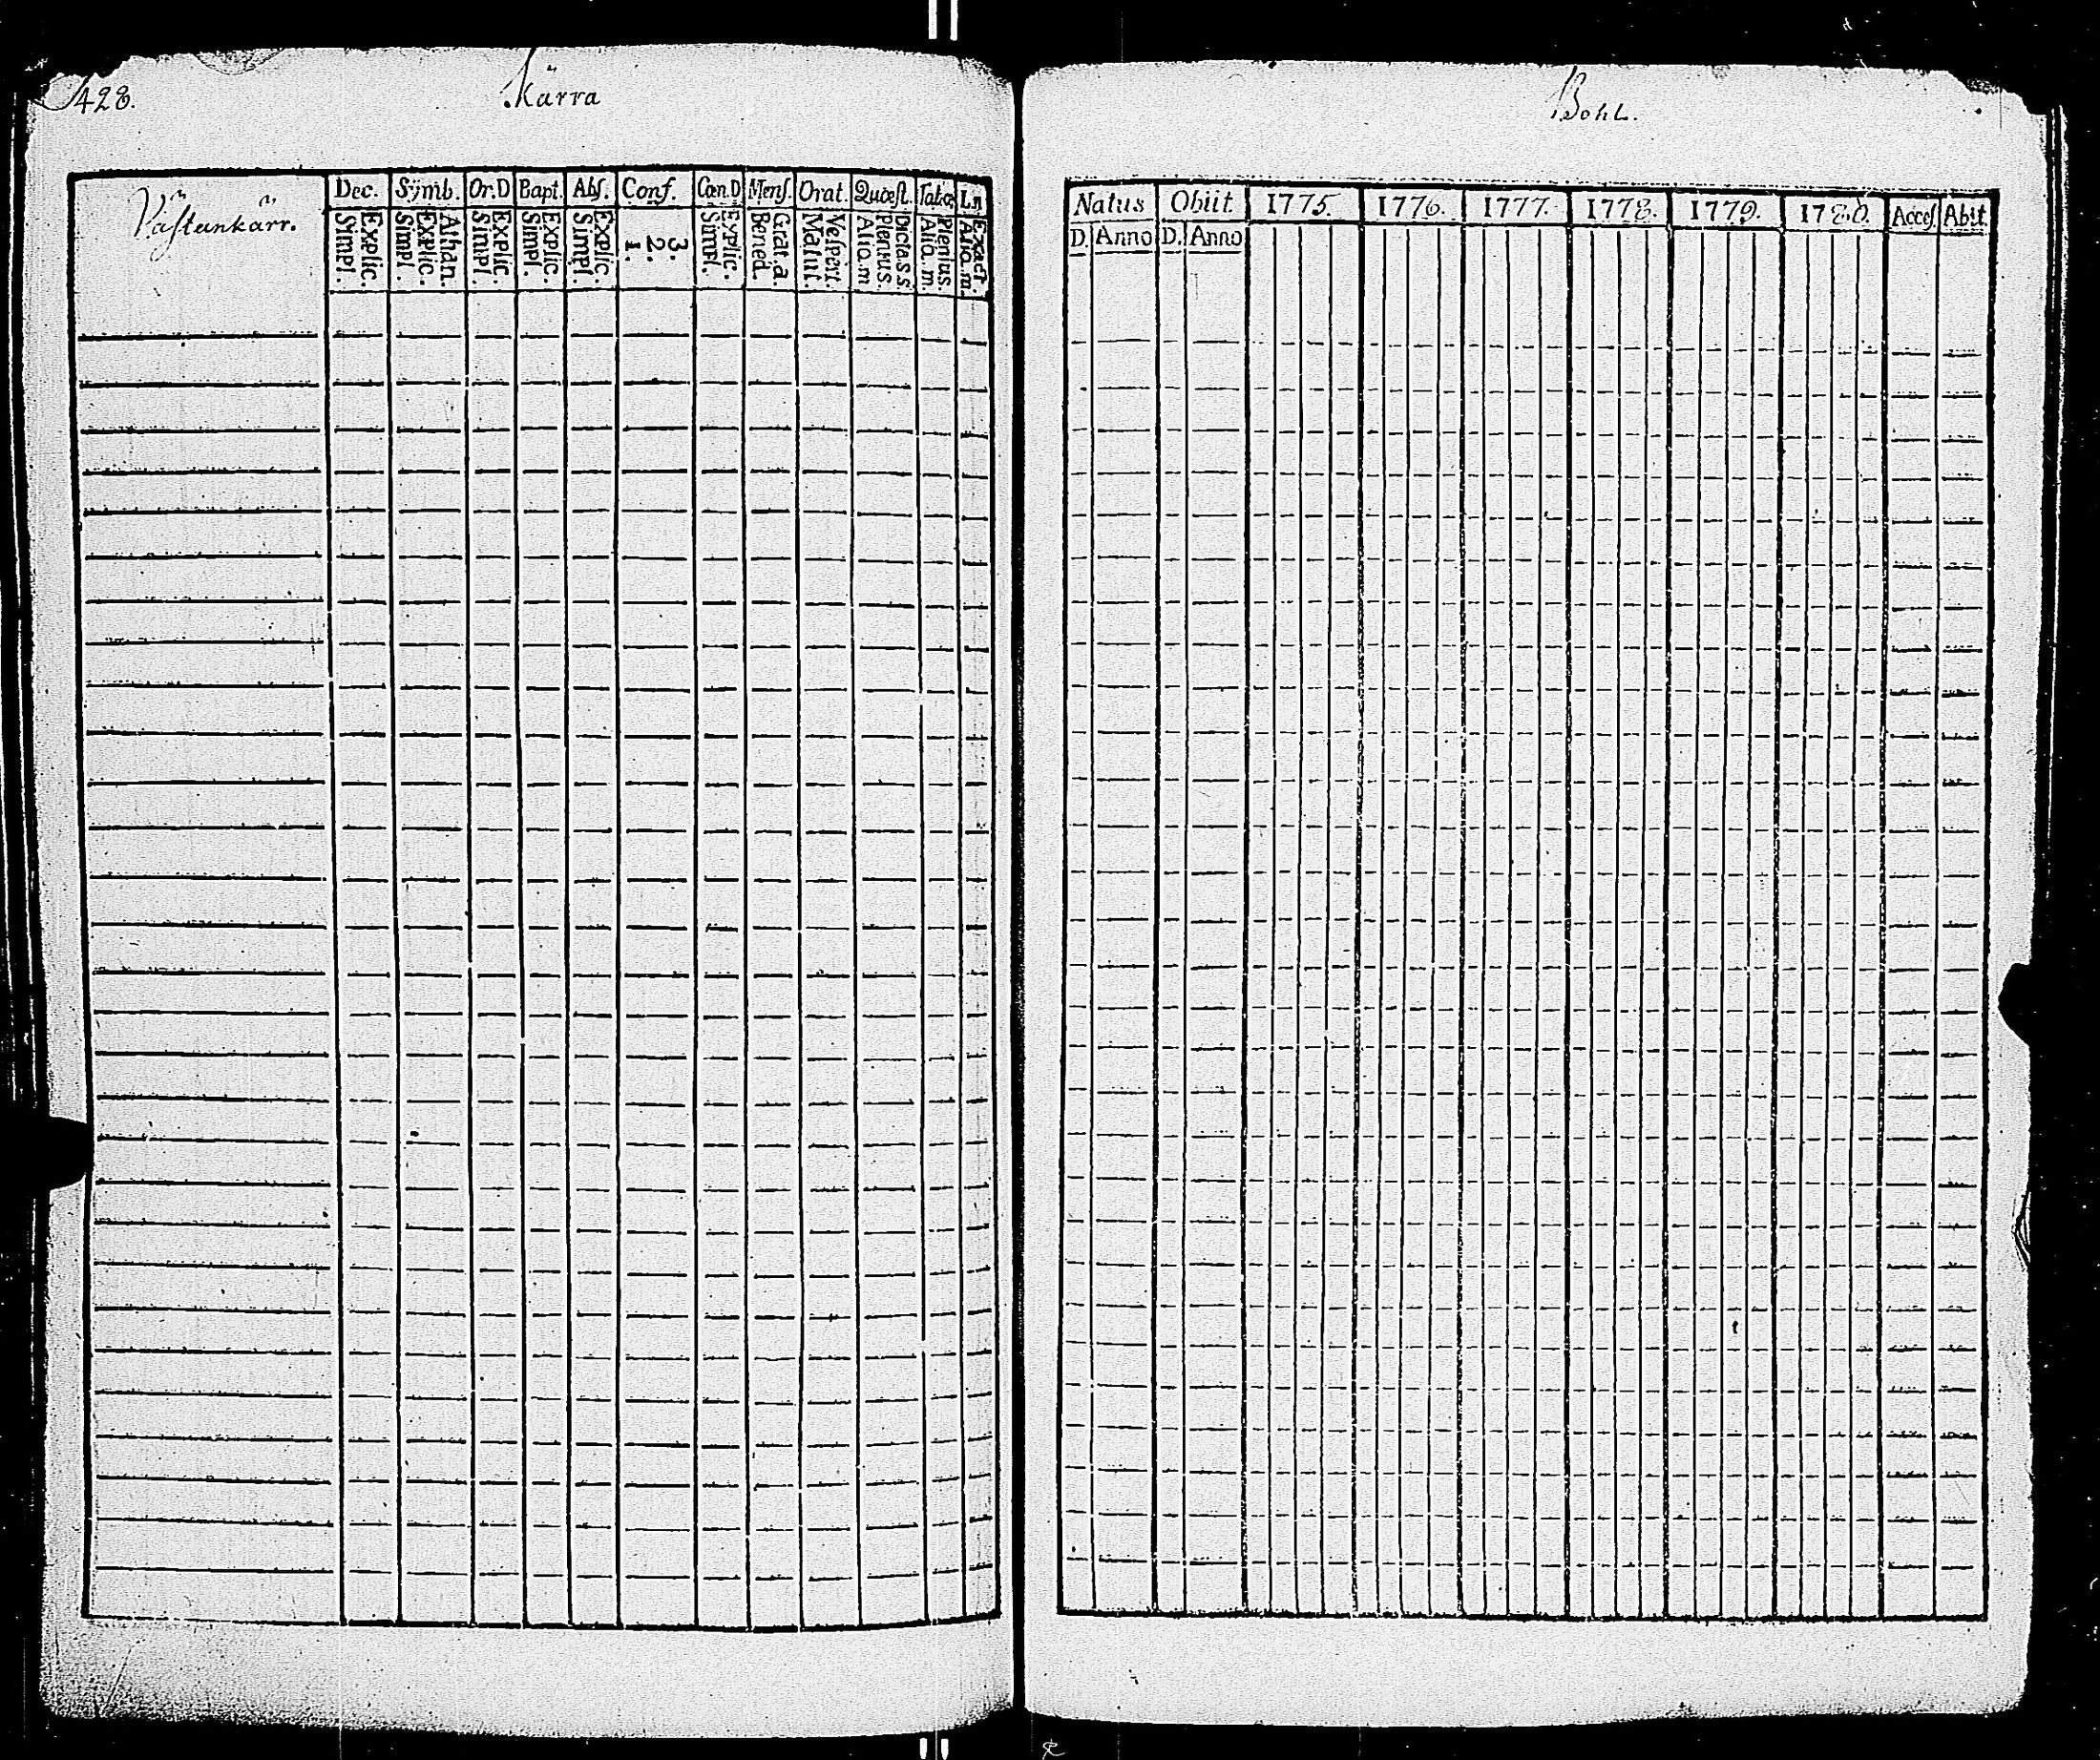 428.
Kärra
Bohl.
Västankärr.
Dec. Sÿmb. Or.D Bapt. Abſ. Conf. Cœn.D Menſ. Orat. Quœſt.
Explic.
Simpl.
Athan.
Explic.
Simpl.
Explic.
Simpl.
Explic.
Simpl.
Explic.
Simpl.
3.
2.
1.
Explic.
Simpl.
Grat. a.
Bened.
Veſpert.
Matut.
Dict. s. s.
Plenius.
Alio. m
Plenius.
Alio. m.
Exact.
Alio. m.
Natus Obiit. 1775. 1776. 1777. 1778. 1779. 1780. Acceſ. Abit
D. Anno D. Anno